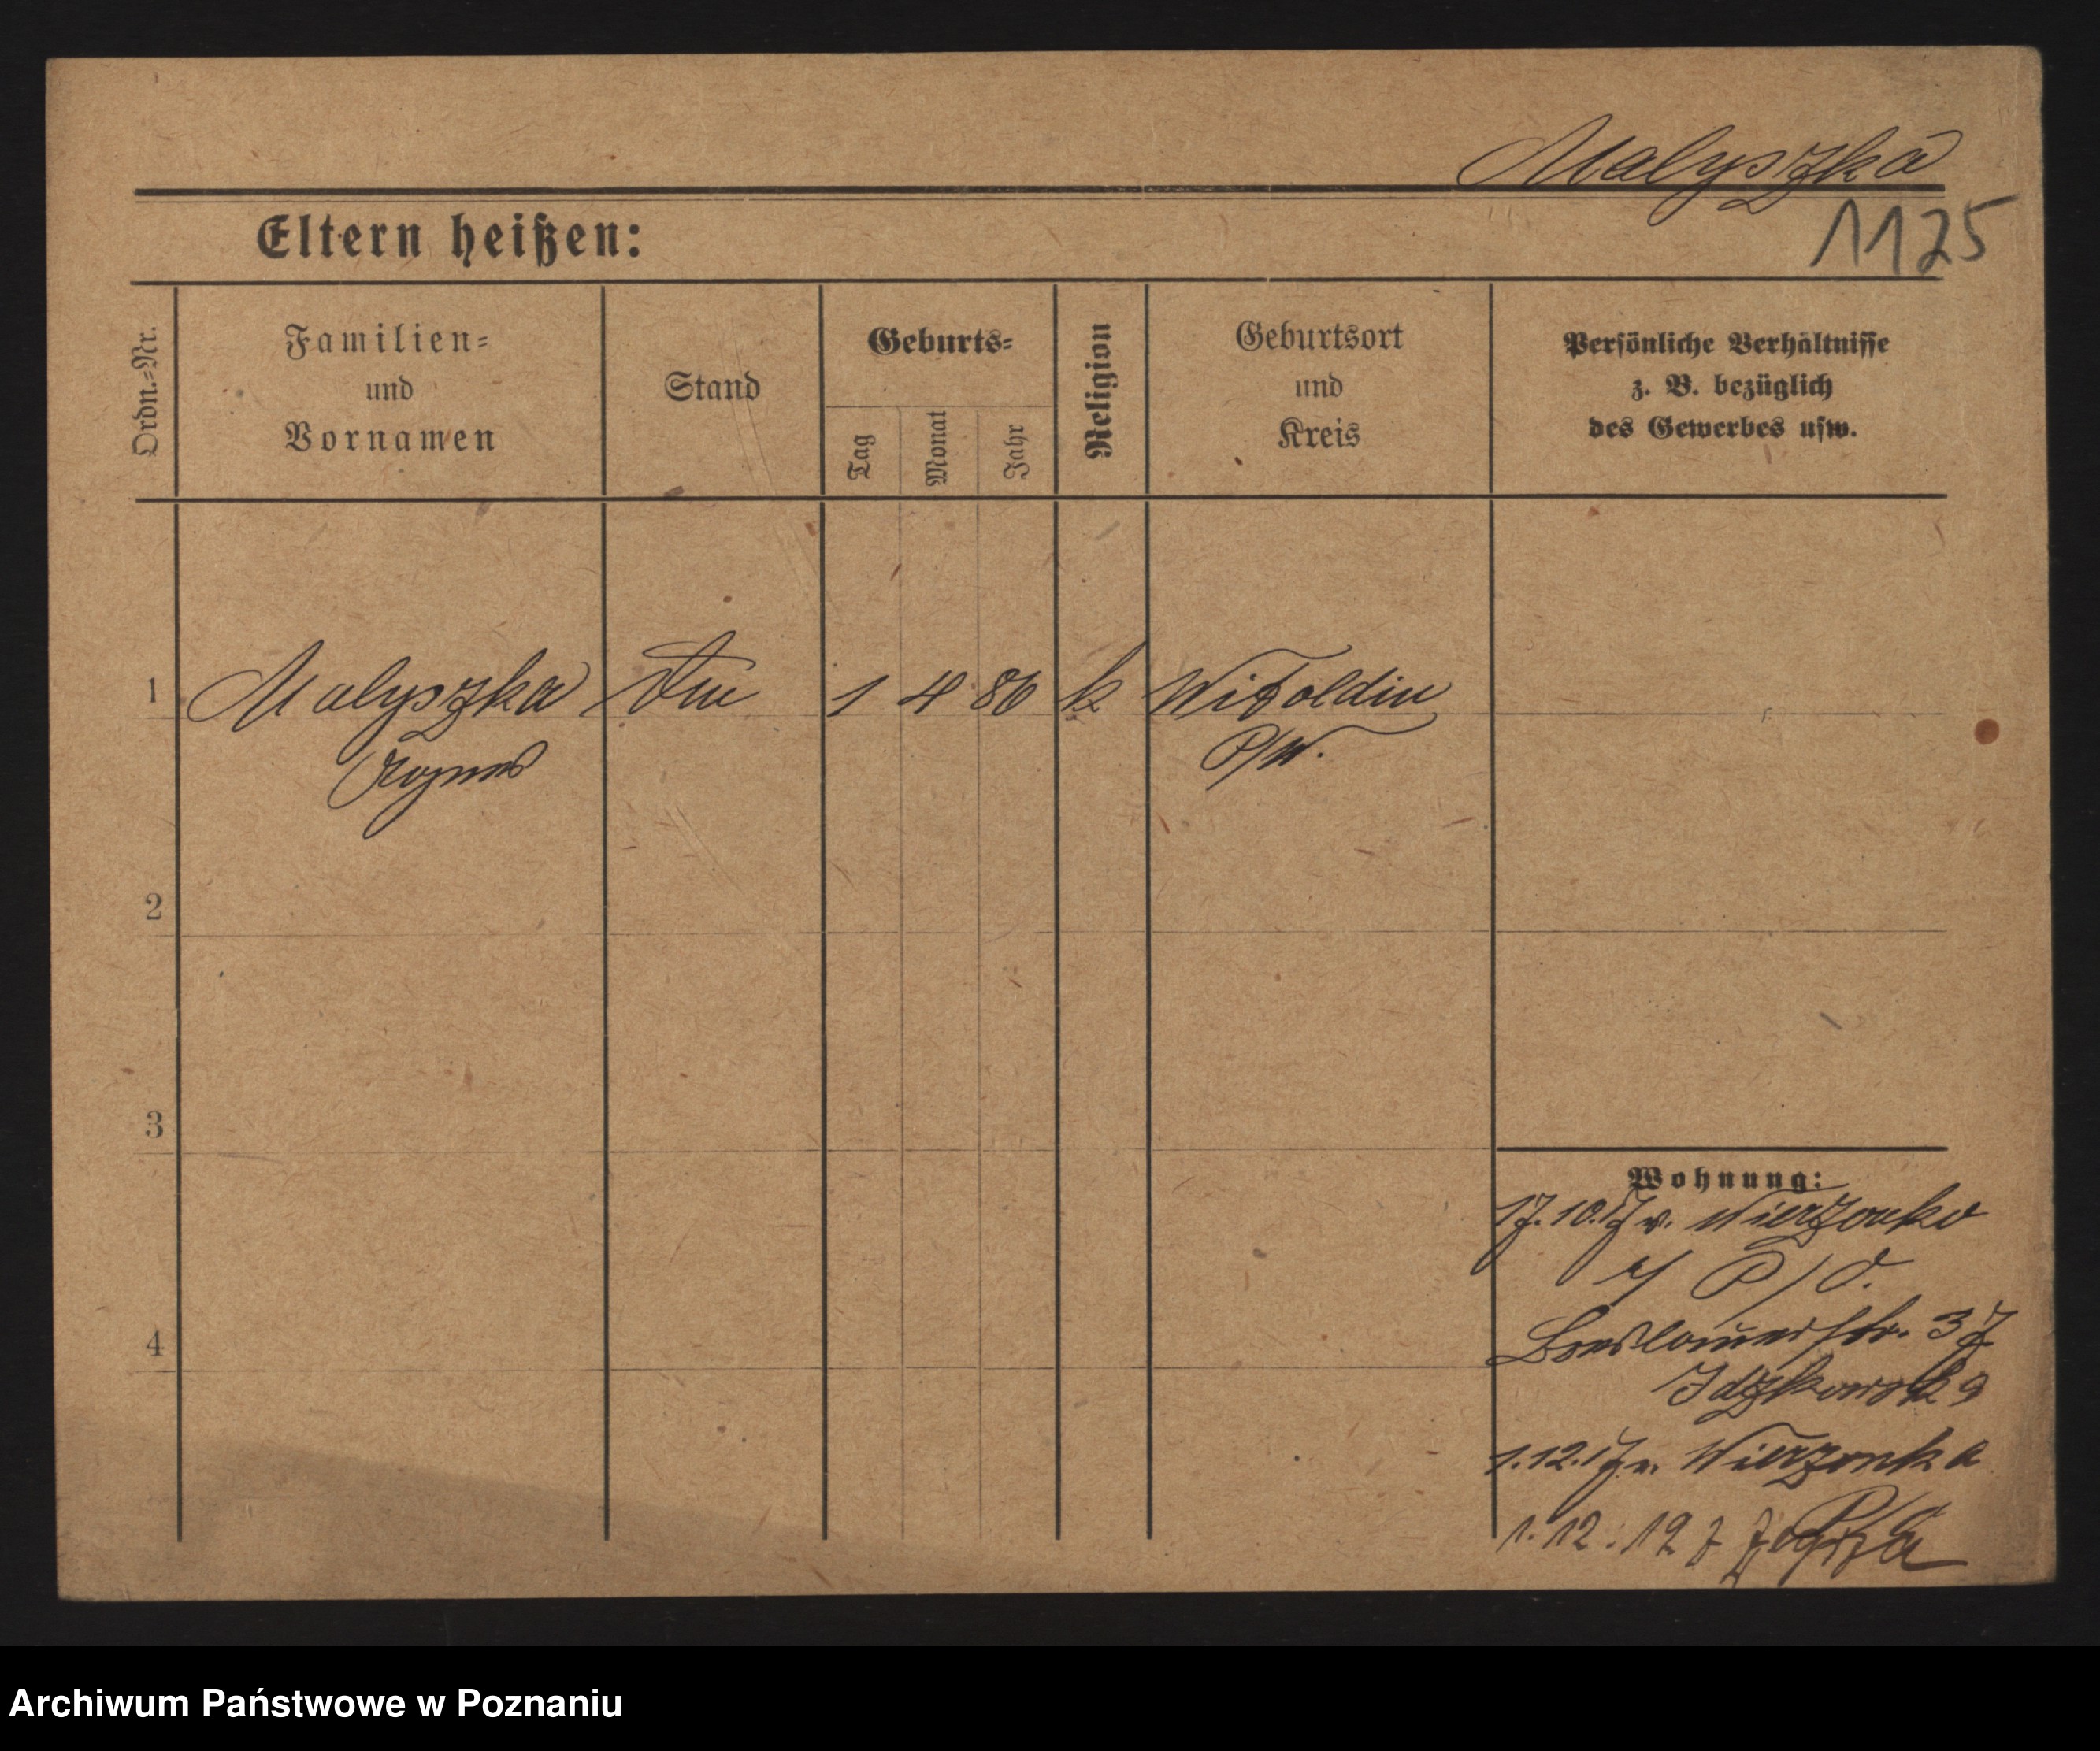 Malyszka
1125
Eltern heißen:
Ordn.-Nr.
Familien-
und
Vornamen
Stand
Geburts-
Tag
Monat
Jahr
Religion
Geburtsort
und
Kreis
Persönliche Verhältnisse
z. B. bezüglich
des Gewerbes usw.
1 Malyszka 1 4 86 k Witoldin
Agnes P/W.
2
3
4
Wohnung:
17.10.17 v. Wierzonko
P/O.
Breslauerstr. 37
Idzkowska
1.12.17 v. Wierzonka
P/O
1.12.17
Archiwum Państwowe w Poznaniu